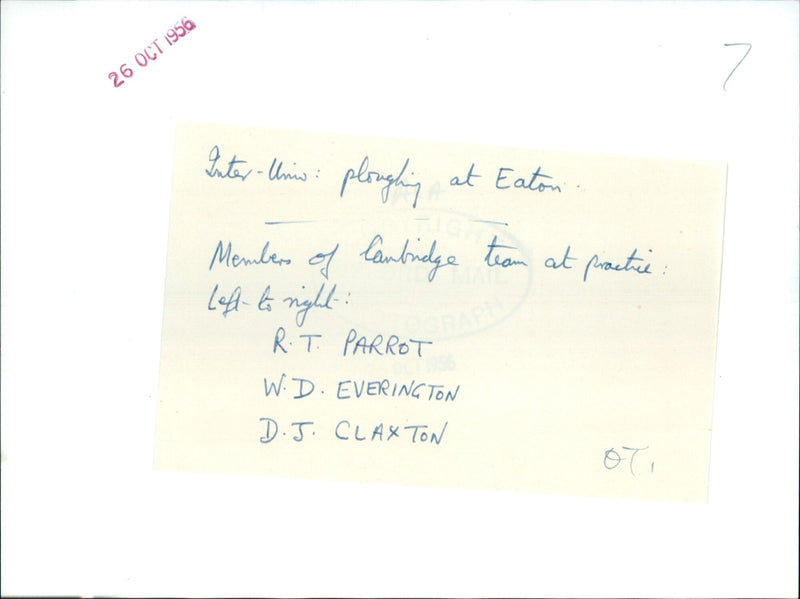 26 OCT 1956
7
Inter-Univ: ploughing at Eaton.
Members of Cambridge team at practice:
Left to right:
R.T. PARROT
W.D. EVERINGTON
D.J. CLAXTON
OT.